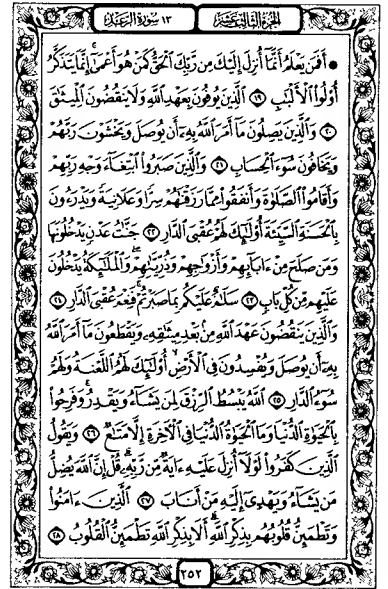 الجزء الثالث عشر
١٣ سورة الرعد
۞ أَفَمَن يَعْلَمُ أَنَّمَآ أُنزِلَ إِلَيْكَ مِن رَّبِّكَ ٱلْحَقُّ كَمَنْ هُوَ أَعْمَىٰٓ ۚ إِنَّمَا يَتَذَكَّرُ
أُو۟لُوا۟ ٱلْأَلْبَٰبِ ١٩ ٱلَّذِينَ يُوفُونَ بِعَهْدِ ٱللَّهِ وَلَا يَنقُضُونَ ٱلْمِيثَٰقَ
٢٠ وَٱلَّذِينَ يَصِلُونَ مَآ أَمَرَ ٱللَّهُ بِهِۦٓ أَن يُوصَلَ وَيَخْشَوْنَ رَبَّهُمْ
وَيَخَافُونَ سُوٓءَ ٱلْحِسَابِ ٢١ وَٱلَّذِينَ صَبَرُوا۟ ٱبْتِغَآءَ وَجْهِ رَبِّهِمْ
وَأَقَامُوا۟ ٱلصَّلَوٰةَ وَأَنفَقُوا۟ مِمَّا رَزَقْنَٰهُمْ سِرًّا وَعَلَانِيَةً وَيَدْرَءُونَ
بِٱلْحَسَنَةِ ٱلسَّيِّئَةَ أُو۟لَٰٓئِكَ لَهُمْ عُقْبَى ٱلدَّارِ ٢٢ جَنَّٰتُ عَدْنٍ يَدْخُلُونَهَا
وَمَن صَلَحَ مِنْ ءَابَآئِهِمْ وَأَزْوَٰجِهِمْ وَذُرِّيَّٰتِهِمْ ۖ وَٱلْمَلَٰٓئِكَةُ يَدْخُلُونَ
عَلَيْهِم مِّن كُلِّ بَابٍ ٢٣ سَلَٰمٌ عَلَيْكُم بِمَا صَبَرْتُمْ ۚ فَنِعْمَ عُقْبَى ٱلدَّارِ ٢٤
وَٱلَّذِينَ يَنقُضُونَ عَهْدَ ٱللَّهِ مِنۢ بَعْدِ مِيثَٰقِهِۦ وَيَقْطَعُونَ مَآ أَمَرَ ٱللَّهُ
بِهِۦٓ أَن يُوصَلَ وَيُفْسِدُونَ فِى ٱلْأَرْضِ ۙ أُو۟لَٰٓئِكَ لَهُمُ ٱللَّعْنَةُ وَلَهُمْ
سُوٓءُ ٱلدَّارِ ٢٥ ٱللَّهُ يَبْسُطُ ٱلرِّزْقَ لِمَن يَشَآءُ وَيَقْدِرُ ۚ وَفَرِحُوا۟
بِٱلْحَيَوٰةِ ٱلدُّنْيَا وَمَا ٱلْحَيَوٰةُ ٱلدُّنْيَا فِى ٱلْأَخِرَةِ إِلَّا مَتَٰعٌ ٢٦ وَيَقُولُ
ٱلَّذِينَ كَفَرُوا۟ لَوْلَآ أُنزِلَ عَلَيْهِ ءَايَةٌ مِّن رَّبِّهِۦ ۗ قُلْ إِنَّ ٱللَّهَ يُضِلُّ
مَن يَشَآءُ وَيَهْدِىٓ إِلَيْهِ مَنْ أَنَابَ ٢٧ ٱلَّذِينَ ءَامَنُوا۟
وَتَطْمَئِنُّ قُلُوبُهُم بِذِكْرِ ٱللَّهِ ۗ أَلَا بِذِكْرِ ٱللَّهِ تَطْمَئِنُّ ٱلْقُلُوبُ ٢٨
٢٥٢